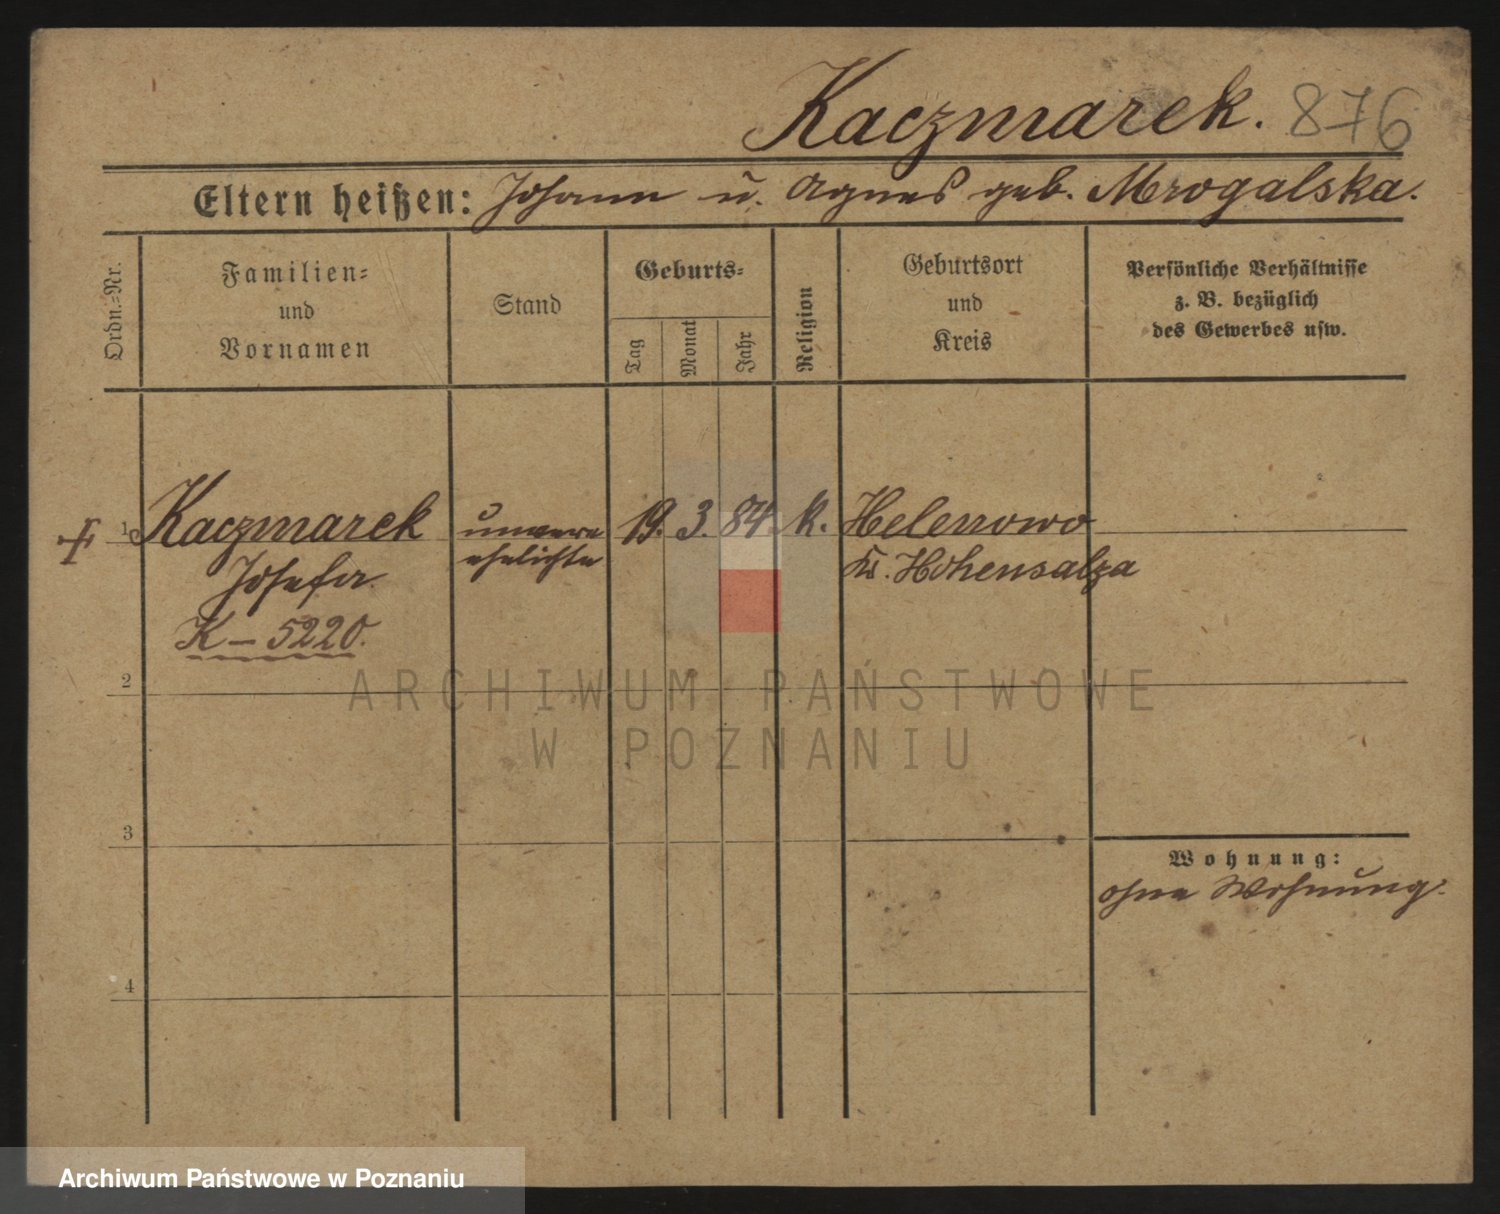 Kaczmarek. 876
Eltern heißen: Johann u. Agnes geb. Mrogalska.
Ordn.=Nr.
Familien=
und
Vornamen
Stand
Geburts=
Tag
Monat
Jahr
Religion
Geburtsort
und
Kreis
Persönliche Verhältnisse
z. B. bezüglich
des Gewerbes usw.
1 Kaczmarek unvere 19. 3. 84. k. Helenowo
Josefa ehelichte Kr. Hohensalza
K - 5220.
2
ARCHIWUM PAŃSTWOWE
W POZNANIU
3
Wohnung:
ohne Wohnung.
4
Archiwum Państwowe w Poznaniu